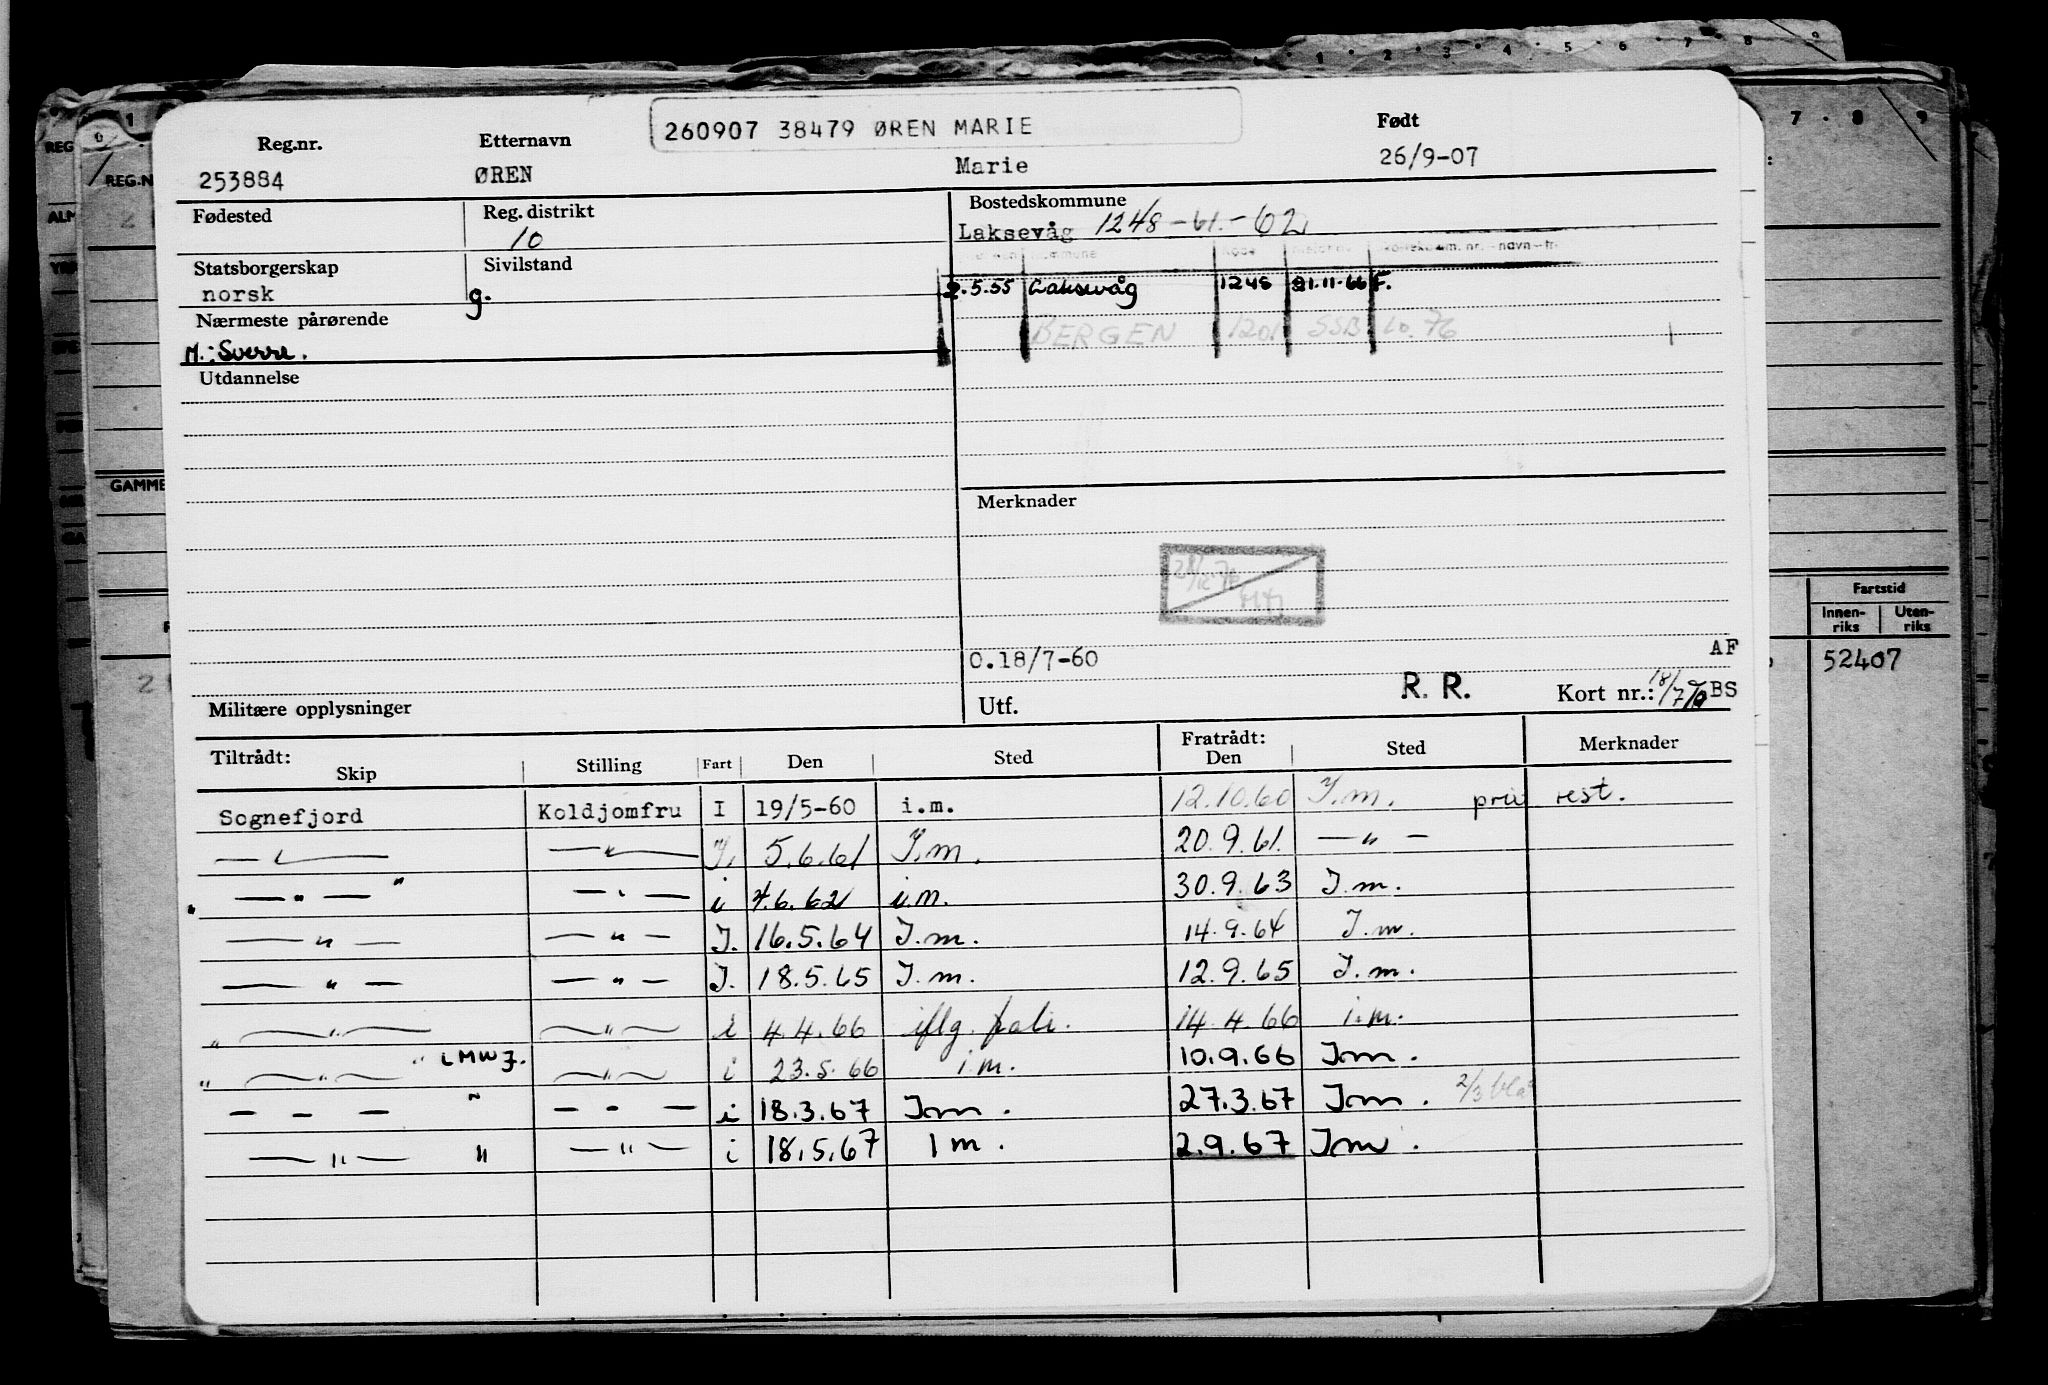 260907 38479 ØREN MARIE
Reg.nr. Etternavn Født
253884 ØREN Marie 26/9-07
Fødested Reg. distrikt Bostedskommune
10 Laksevåg 1248-61.-62
Statsborgerskap Sivilstand
norsk g. 2.5.55 Laksevåg 1248 21.11.66 F.
Nærmeste pårørende BERGEN 1201 SSB 10.76
M.: Sverre.
Utdannelse
Merknader
O.18/7-60 AF
Militære opplysninger Utf. R. R. Kort nr.: 18/7 BS
Tiltrådt: Fratrådt:
Skip Stilling Fart Den Sted Den Sted Merknader
Sognefjord Koldjomfru I 19/5-60 i.m. 12.10.60 I.m. priv rest.
— " — — " — I. 5.6.61 I.m. 20.9.61. — " —
— " — " — " — i 4.6.62 i.m. 30.9.63 I.m.
— " — — " — I. 16.5.64 I.m. 14.9.64 I.m.
— " — — " — I. 18.5.65 I.m. 12.9.65 I.m.
" — " — — " — i 4.4.66 iflg. 14.4.66 i.m.
" — " — " LMWJ. — " — i 23.5.66 i.m. 10.9.66 Im.
— - — " — - — i 18.3.67 Im. 27.3.67 Im. 2/3 bla
— " — " — " — i 18.5.67 Im. 2.9.67 Im.
REG.N
GAMME
Fartstid
Innen-riks Uten-riks
52407